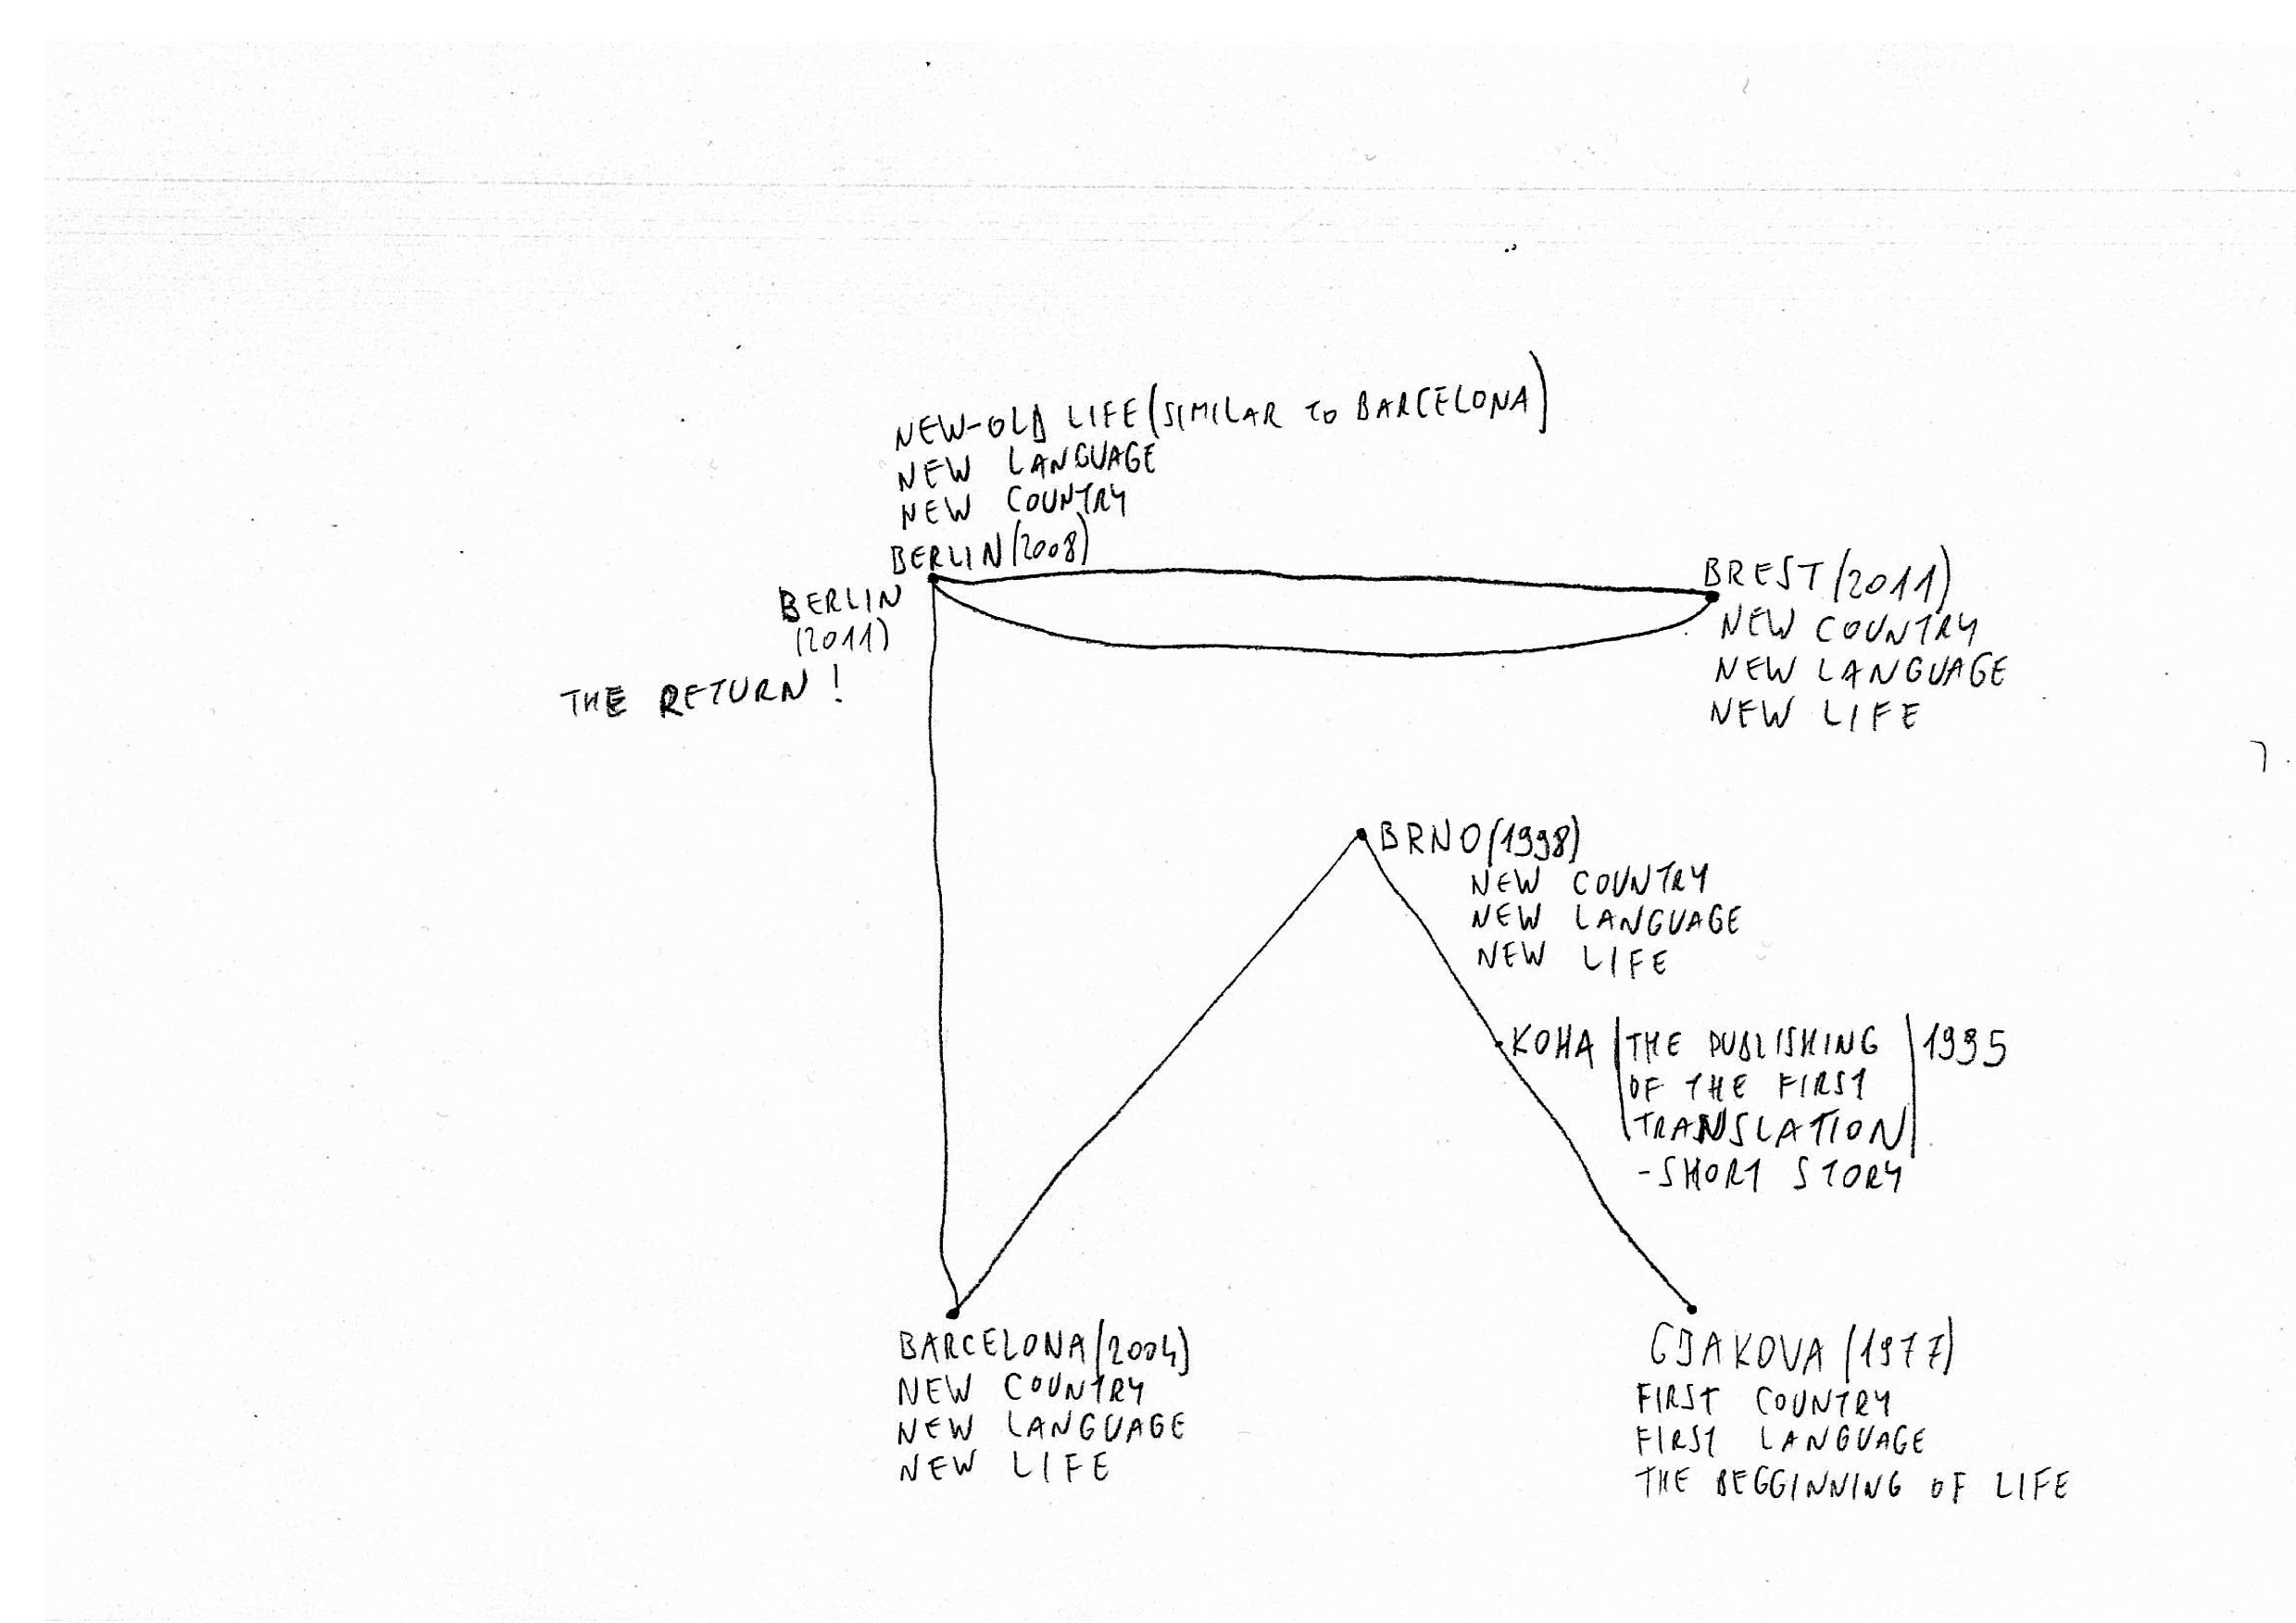 NEW-OLD LIFE (SIMILAR TO BARCELONA)
NEW LANGUAGE
NEW COUNTRY
BERLIN (2008)
BERLIN
(2011)
THE RETURN!
BREST (2011)
NEW COUNTRY
NEW LANGUAGE
NEW LIFE
BRNO (1998)
NEW COUNTRY
NEW LANGUAGE
NEW LIFE
KOHA (THE PUBLISHING) 1995
OF THE FIRST
TRANSLATION
-SHORT STORY
BARCELONA (2004)
NEW COUNTRY
NEW LANGUAGE
NEW LIFE
GJAKOVA (1977)
FIRST COUNTRY
FIRST LANGUAGE
THE BEGGINNING OF LIFE